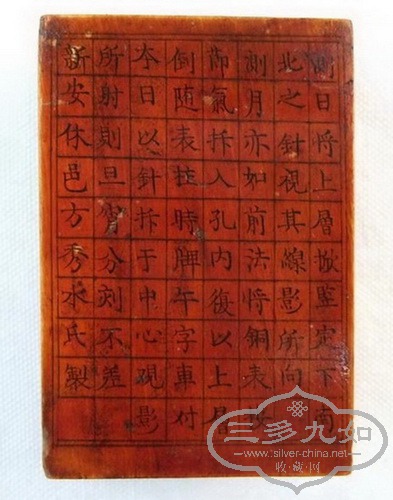 測日將上層掀竪定下南
北之針視其線影所向
測月亦如前法將銅表安
節氣拆入孔內復以上層
倒随表柱時牌午字車付
夲日以針拆于中心硯影
所射則旦宵分刻不差
新安休邑方秀水氏製
三多九如
www.silver-china.net
收藏网